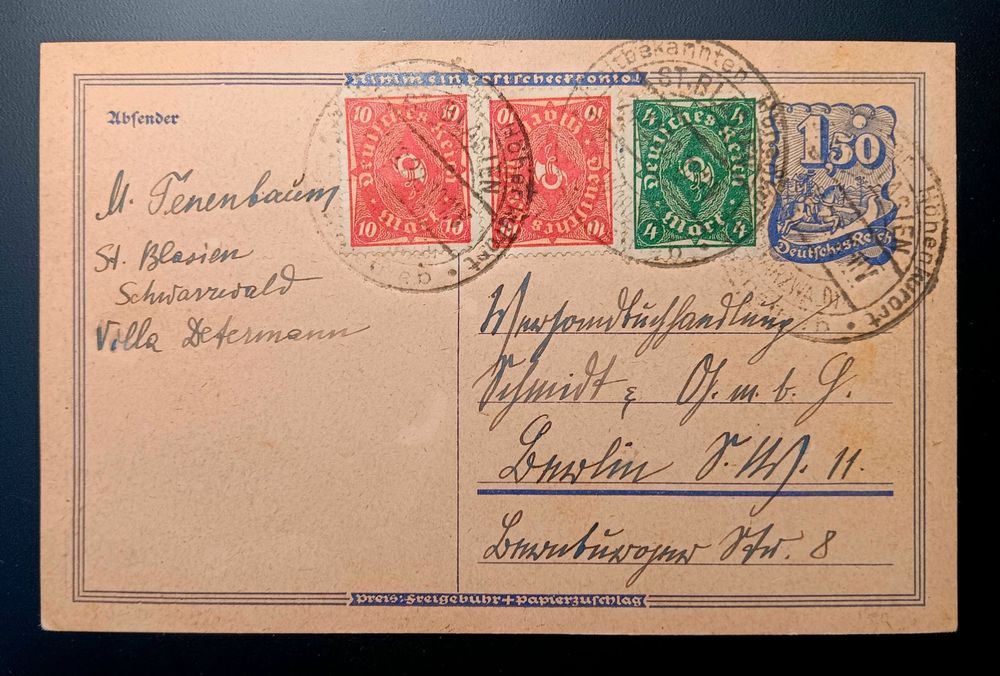 Nimm ein Postscheckkonto!
Absender
10 10
Deutsches Reich
Mark
10 10
10 10
Deutsches Reich
Mark
10 10
4 4
Deutsches Reich
Mark
4 4
1,50
Deutsches Reich
bekannten
ST. BL
Höhenkurort
ASIEN
Höhenkurort
M. Tenenbaum
St. Blasien
Schwarzwald
Villa Determann
Versandbuchhandlung
Schmidt & G. m. b. H.
Berlin S. W. 11.
Bernburger Str. 8
Preis: Freigebühr + Papierzuschlag